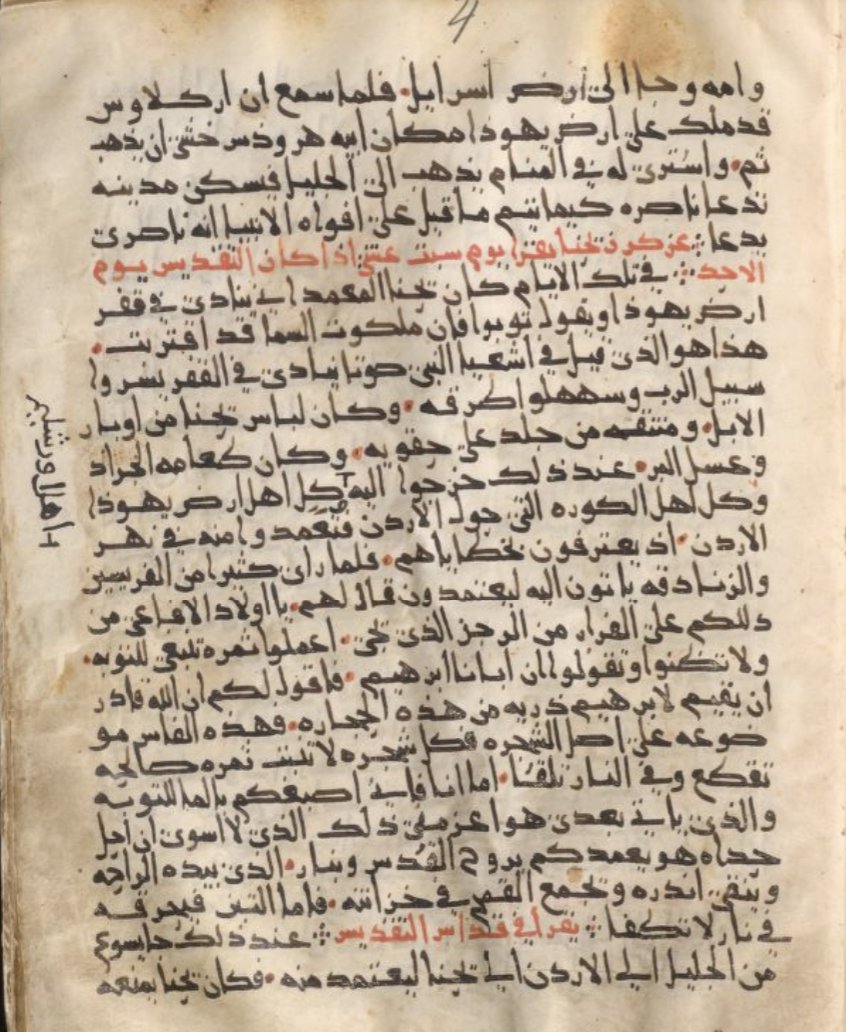 4
وامه وجا الى ارض اسرايل. فلما سمع ان اركلاوس
قد ملك على ارض يهوذا مكان ابيه هرودس خشى ان يذهب
ثم. واسترى له في المنام يذهب الى الجليل فيسكن مدينه
تدعا ناصره كيما يتم ما قيل على افواه الانبيا انه ناصرى
يدعا ܀ عن كرز يحنا يقرا يوم سبت عشى اذا كان التقديس يوم
الاحد ܀ في تلك الايام كان يحنا المعمداني ينادى في قفر
ارض يهوذا ويقول توبوا فان ملكوت السما قد اقتربت.
هذا هو الذى قيل في اشعيا النبى صوتا ينادى في القفر يسروا
سبيل الرب وسهلوا طرقه. وكان لباس يحنا من اوبار
الابل. ومنتقه من جلد على حقويه. وكان طعامه الجراد
وعسل البر. عند ذلك خرجوا اليه كل اهل ارض يهوذا
وكل اهل الكوره التى حول الاردن فتعمدوا منه في نهر
الاردن. اذ يعترفون بخطاياهم. فلما راى كثيرا من الفريسين
والزنادقه ياتون اليه ليعتمدون قال لهم. يا اولاد الافاعى من
دلكم على الفرار من الرجز الذى يجى. اعملوا ثمره تنبغى للتوبه.
ولا تظنوا وتقولوا ان ابانا ابرهيم. فاقول لكم ان الله قادر
ان يقيم لابرهيم ذريه من هذه الحجاره. فهذه الفاس مو
ضوعه على اصل الشجره فكل شجره لا تنبت ثمره صالحه
تقطع وفي النار تلقا. اما انا فاني اصبغكم بالما للتوبه
والذى ياتي بعدى هو اعز منى ذلك الذى لا اسوى ان احل
حداه هو يعمدكم بروح القدس وبنار. الذى بيده الراحه
وينقى اندره ويجمع القمح في خزانته. فاما التبن فيحرقه
في نار لا تطفا ܀ يقرا في قداس التقديس ܀ عند ذلك جا يسوع
من الجليل الى الاردن الى يحنا ليعتمد منه. فكان يحنا يمنعه